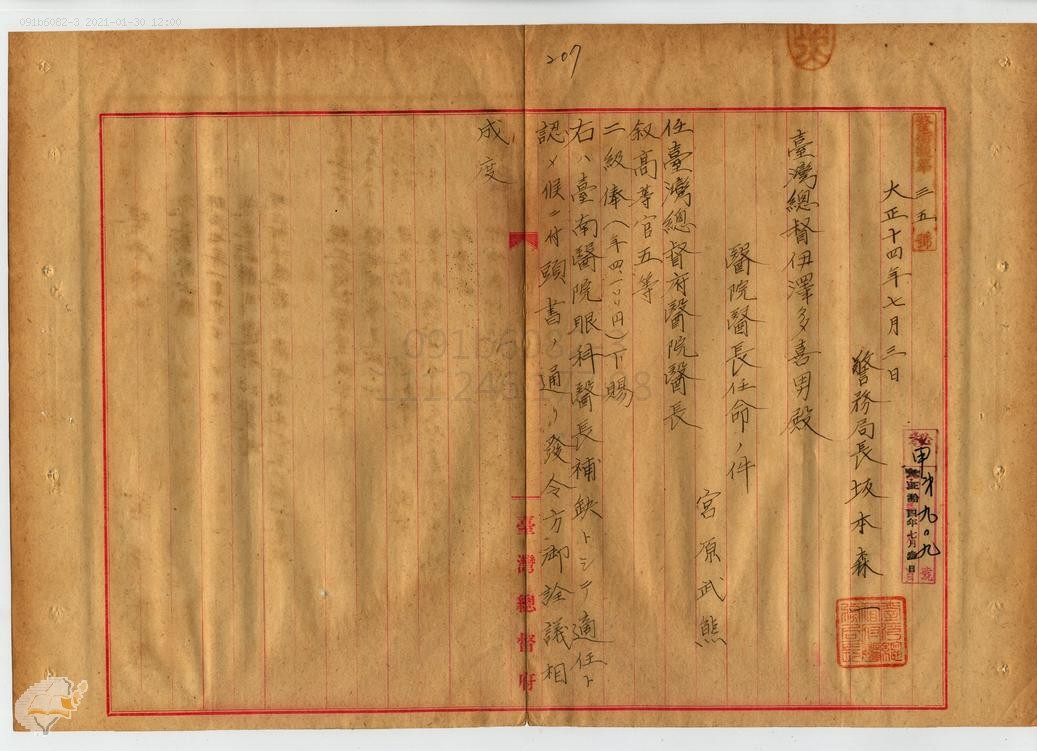 091b6082-3 2021-01-30 12:00
207
三五號
大正十四年七月三日
警務局長坂本森一
臺灣總督伊澤多喜男殿
醫院醫長任命ノ件
宮原武熊
任臺灣總督府醫院醫長
叙高等官五等
二級俸
下賜
右ハ臺南醫院眼科醫長補缺トシテ適任ト
認メ候ニ付頭書ノ通リ發令方御詮議相
成度
臺灣總督府